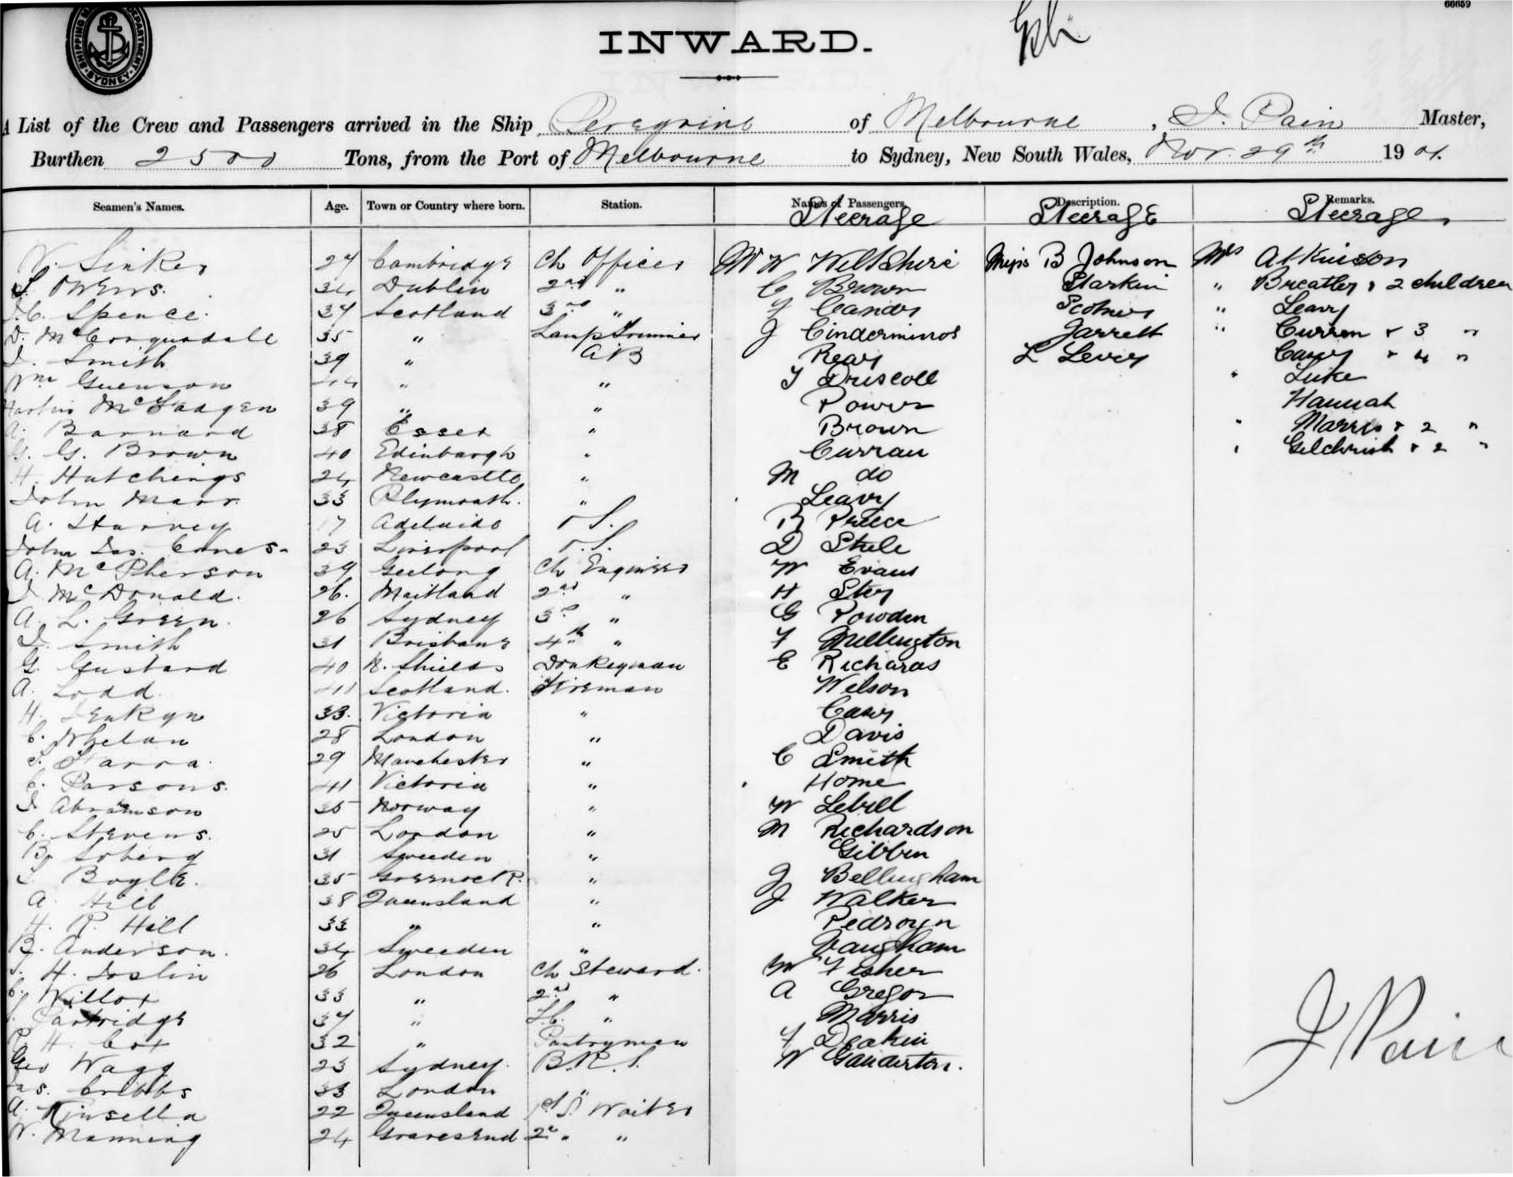 66659
SHIPPING DEPARTMENT SYDNEY
INWARD.
A List of the Crew and Passengers arrived in the Ship Peregrine of Melbourne, J. Pain Master,
Burthen 2500 Tons, from the Port of Melbourne to Sydney, New South Wales, Nov. 29th 1901.
Seamen's Names. Age. Town or Country where born. Station. Names of Passengers. Description. Remarks.
Steerage Steerage Steerage
27 Cambridge Ch Officer Mr W Wiltshire Miss B Johnson Mrs Atkinson
Owens. 34 Dublin 2nd " C Brown Starkin " Breatley & 2 children
Spence. 37 Scotland 3rd " " Leavy
D. McCorquodale 35 " Lamp Trimmer J Garrett " Curren & 3 "
J. Smith 39 " AB Reay L Levey Carey & 4 "
Wm 44 " " T Driscoll " Luke
McFadgen 39 " " Power Hannah
A. Barnard 38 Essex " Brown " Marris & 2 "
G. G. Brown 40 Edinburgh " Curran " Gilchrist & 2 "
H. Hutchings 24 Newcastle " M do
John Marr 33 Plymouth. " Leavy
A. Harvey 17 Adelaide O.S. R Preece
John Jas. 23 Liverpool O.S. D Stele
A. McPherson 39 Geelong Ch Engineer W Evans
J. McDonald. 26. Maitland 2nd " H
A. L. Green. 26 Sydney 3rd " G Powden
J. Smith 31 Brisbane 4th " F Millington
G. Custard 40 N. Shields Donkeyman E Richards
A. Lodd. 41 Scotland. Fireman Wilson
H. Jenkyn 33. Victoria " Casey
C. Whelan 28 London " Davis
29 Manchester " C Smith
C. Parsons. 41 Victoria " Home
J. Abramson 35 Norway " W Lebill
C. Stevens. 25 London " M Richardson
B. Soberg 31 Sweeden " Gibbin
Boyle. 35 Greenock " J Bellingham
A. Hill 38 Queensland " J Walker
H. R. Hill 33 " "
B. Anderson. 34 Sweeden " Vaugham
H. Joslin 26 London Ch Steward. W Fisher
Willox 33 " 2nd " A Gregor
Partridge 37 " " Marris
H. Cox 32 " Pantryman F Deakin
Geo Wagg 23 Sydney. B.R.S. W Ganderton.
Jas. Cribbs 33 London "
A. Kinsella 22 Queensland 1st S. Waiter
W. Manning 24 Gravesend 2nd " "
J Pain